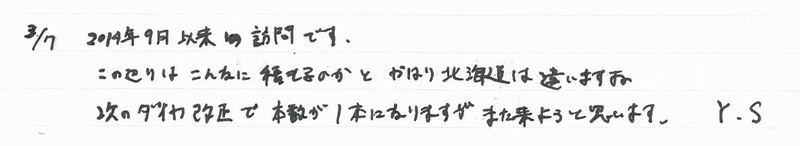 3/7 2019年9月以来の訪問です。
この辺りはこんなに積もるのかと やはり北海道は違いますね
次のダイヤ改正で本数が1本になりますが また来ようと思います。 Y.S